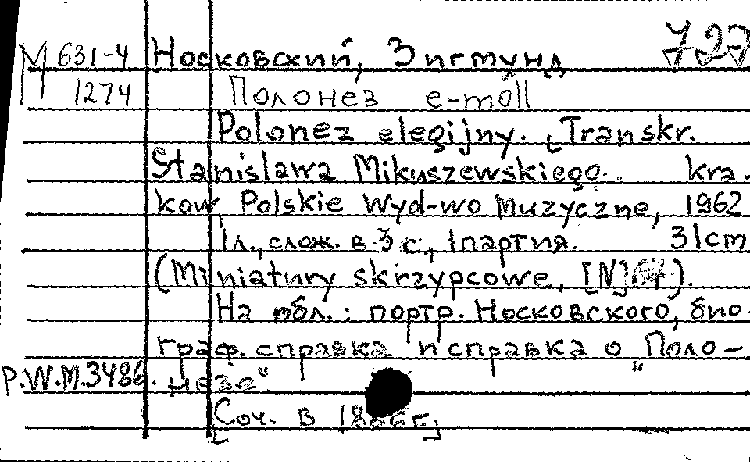 727
М 631-4 Носковский, Зигмунд
1274 Полонез e-moll
Polonez elegijny. [Transkr.
Stanislawa Mikuszewskiego. Kra-
kow Polskie Wyd-wo Muzyczne, 1962
1л., слож. в 3 с., 1партия. 31cm
(Miniatury skrzypcowe, [N] ).
На обл.: портр. Носковского, био-
граф. справка и справка о „Поло-
P.W.M.3486. незе“
[Соч. в г.]